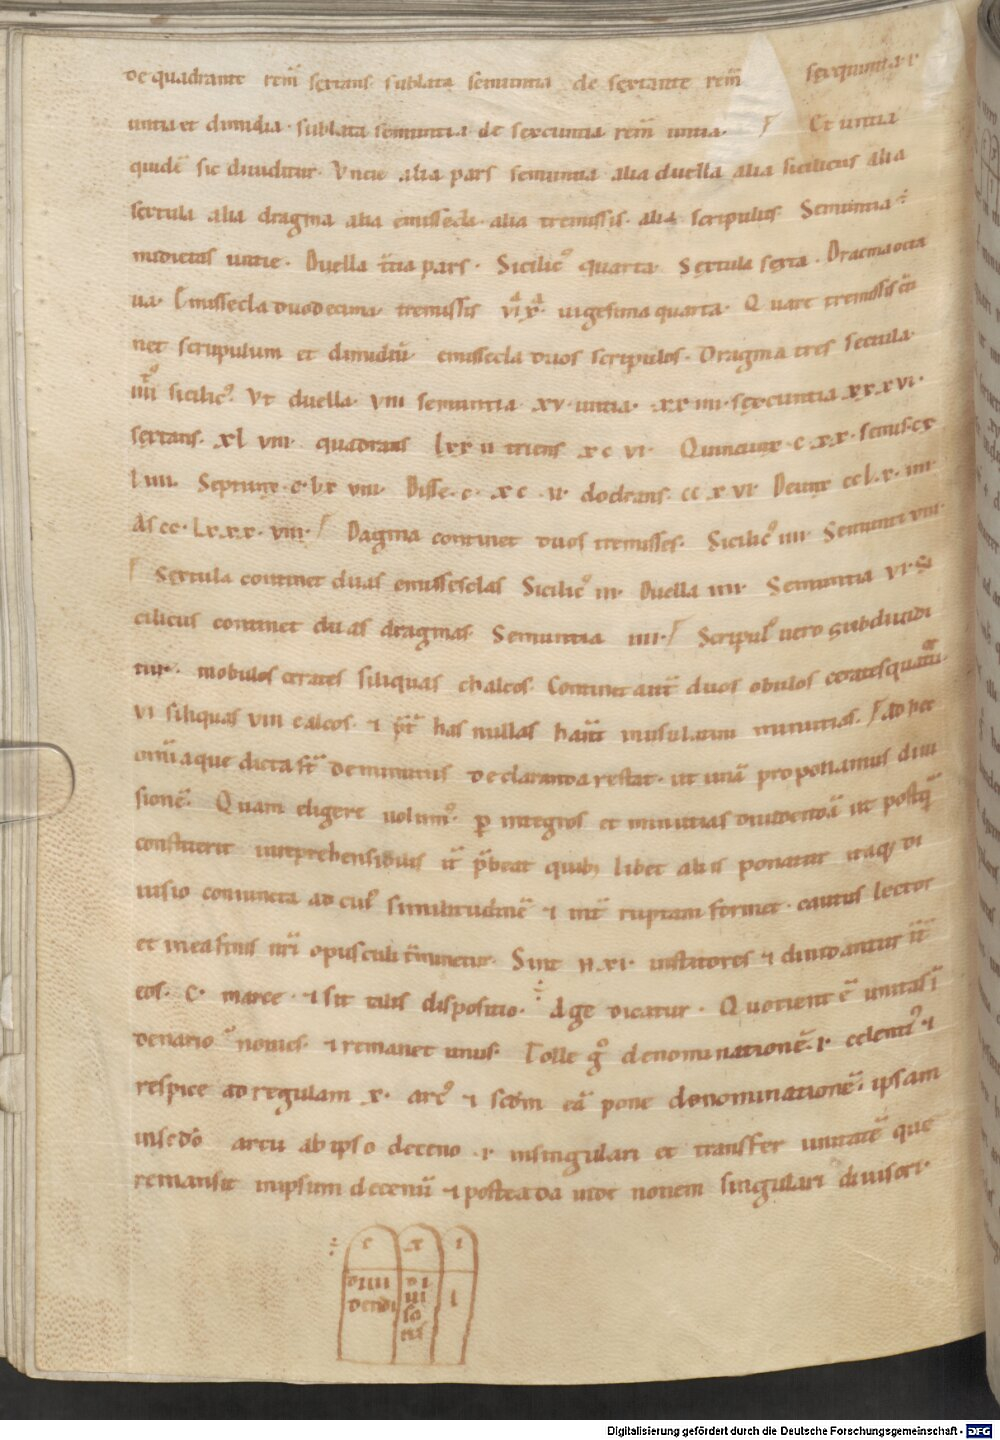 de quadrante rem̄ sextans sublata semuntia de sextante rem̄ sexquuntia ·i·
untia et dimidia · sublata semuntia de sexcuntia rem̄ untia · Et untia
quidē sic diuiditur · Vncie alia pars semuntia alia duella alia sicilicus alia
sextula alia dragma alia emissecla · alia tremissis · alia scripulus · Semuntia ÷
medietas untie · Duella t̄tia pars · Sicilicꝰ quarta · Sextula sexta · Dracma octa
ua · Emissecla duodecima tremissis uigesima quarta · Quare tremissis cti
net scripulum et dimidiū emissecla duos scripulos · Dragma tres sextula
iiii sicilicꝰ Vt duella · viii semuntia · xv · untia · xx iiii · sexcuntia xxxvi ·
sextans · xl viii · quadrans lxx ii triens xc vi · Quincunx · c xx · semis · cx
l iiii · Septunx · c · lx viii · Bisse · c · xc · ii · dodrans · cc x vi · Deunx cc lx · iiii
As cc · Lxxx · viii · Dagma continet duos tremisses · Sicilicꝰ iiii · Semunti viii ·
Sextula continet duas emissesclas Sicilicꝰ iii · Duella iiii · Semuntia vi · Si
cilicus continet duas dragmas · Semuntia iiii · Scripulꝰ uero subdiuidi
tur · in obulos cerates siliquas chalcos · Continet aut̄ duos obulos cerates quattu
vi siliquas viii calcos · ⁊ p̄t has nullas hn̄t in usu latini minutias · Ad hec
omīa que dicta st̄ de minutiis declaranda restat · ut unā proponamus diui
sionē · Quam eligere uolumꝰ · ꝑ integros et minutias diuidendā ut postq̄
constiterit inreprehensibilis it̄ p̄beat quibꝫ libet aliis ponatur itaqꝫ di
uisio coniuncta ad cuiꝰ similitudinē ⁊ int̄ ruptam formet · cautus lector
et in ea finis nr̄i opusculi t̄minetur · Sint n · xi · institores ⁊ diuidantur it̄
eos · C · marce · ⁊ sit talis dispositio · ÷ Age dicatur · Quotient ē unitas ī
denario nouies · ⁊ remanet unus · Tolle gͦ denominationē · i · celentiꝰ ⁊
respice ad regulam x · arcꝰ ⁊ scdm eā pone denominationē · ipsam
in secdō arcu ab ipso deceno · i · in singulari et transfer unitatē que
remansit in ipsum decenū ⁊ postea da uicē nonem singulari diuisori ·
÷ c x i
diui di i
dendi ui
so
res
Digitalisierung gefördert durch die Deutsche Forschungsgemeinschaft - DFG